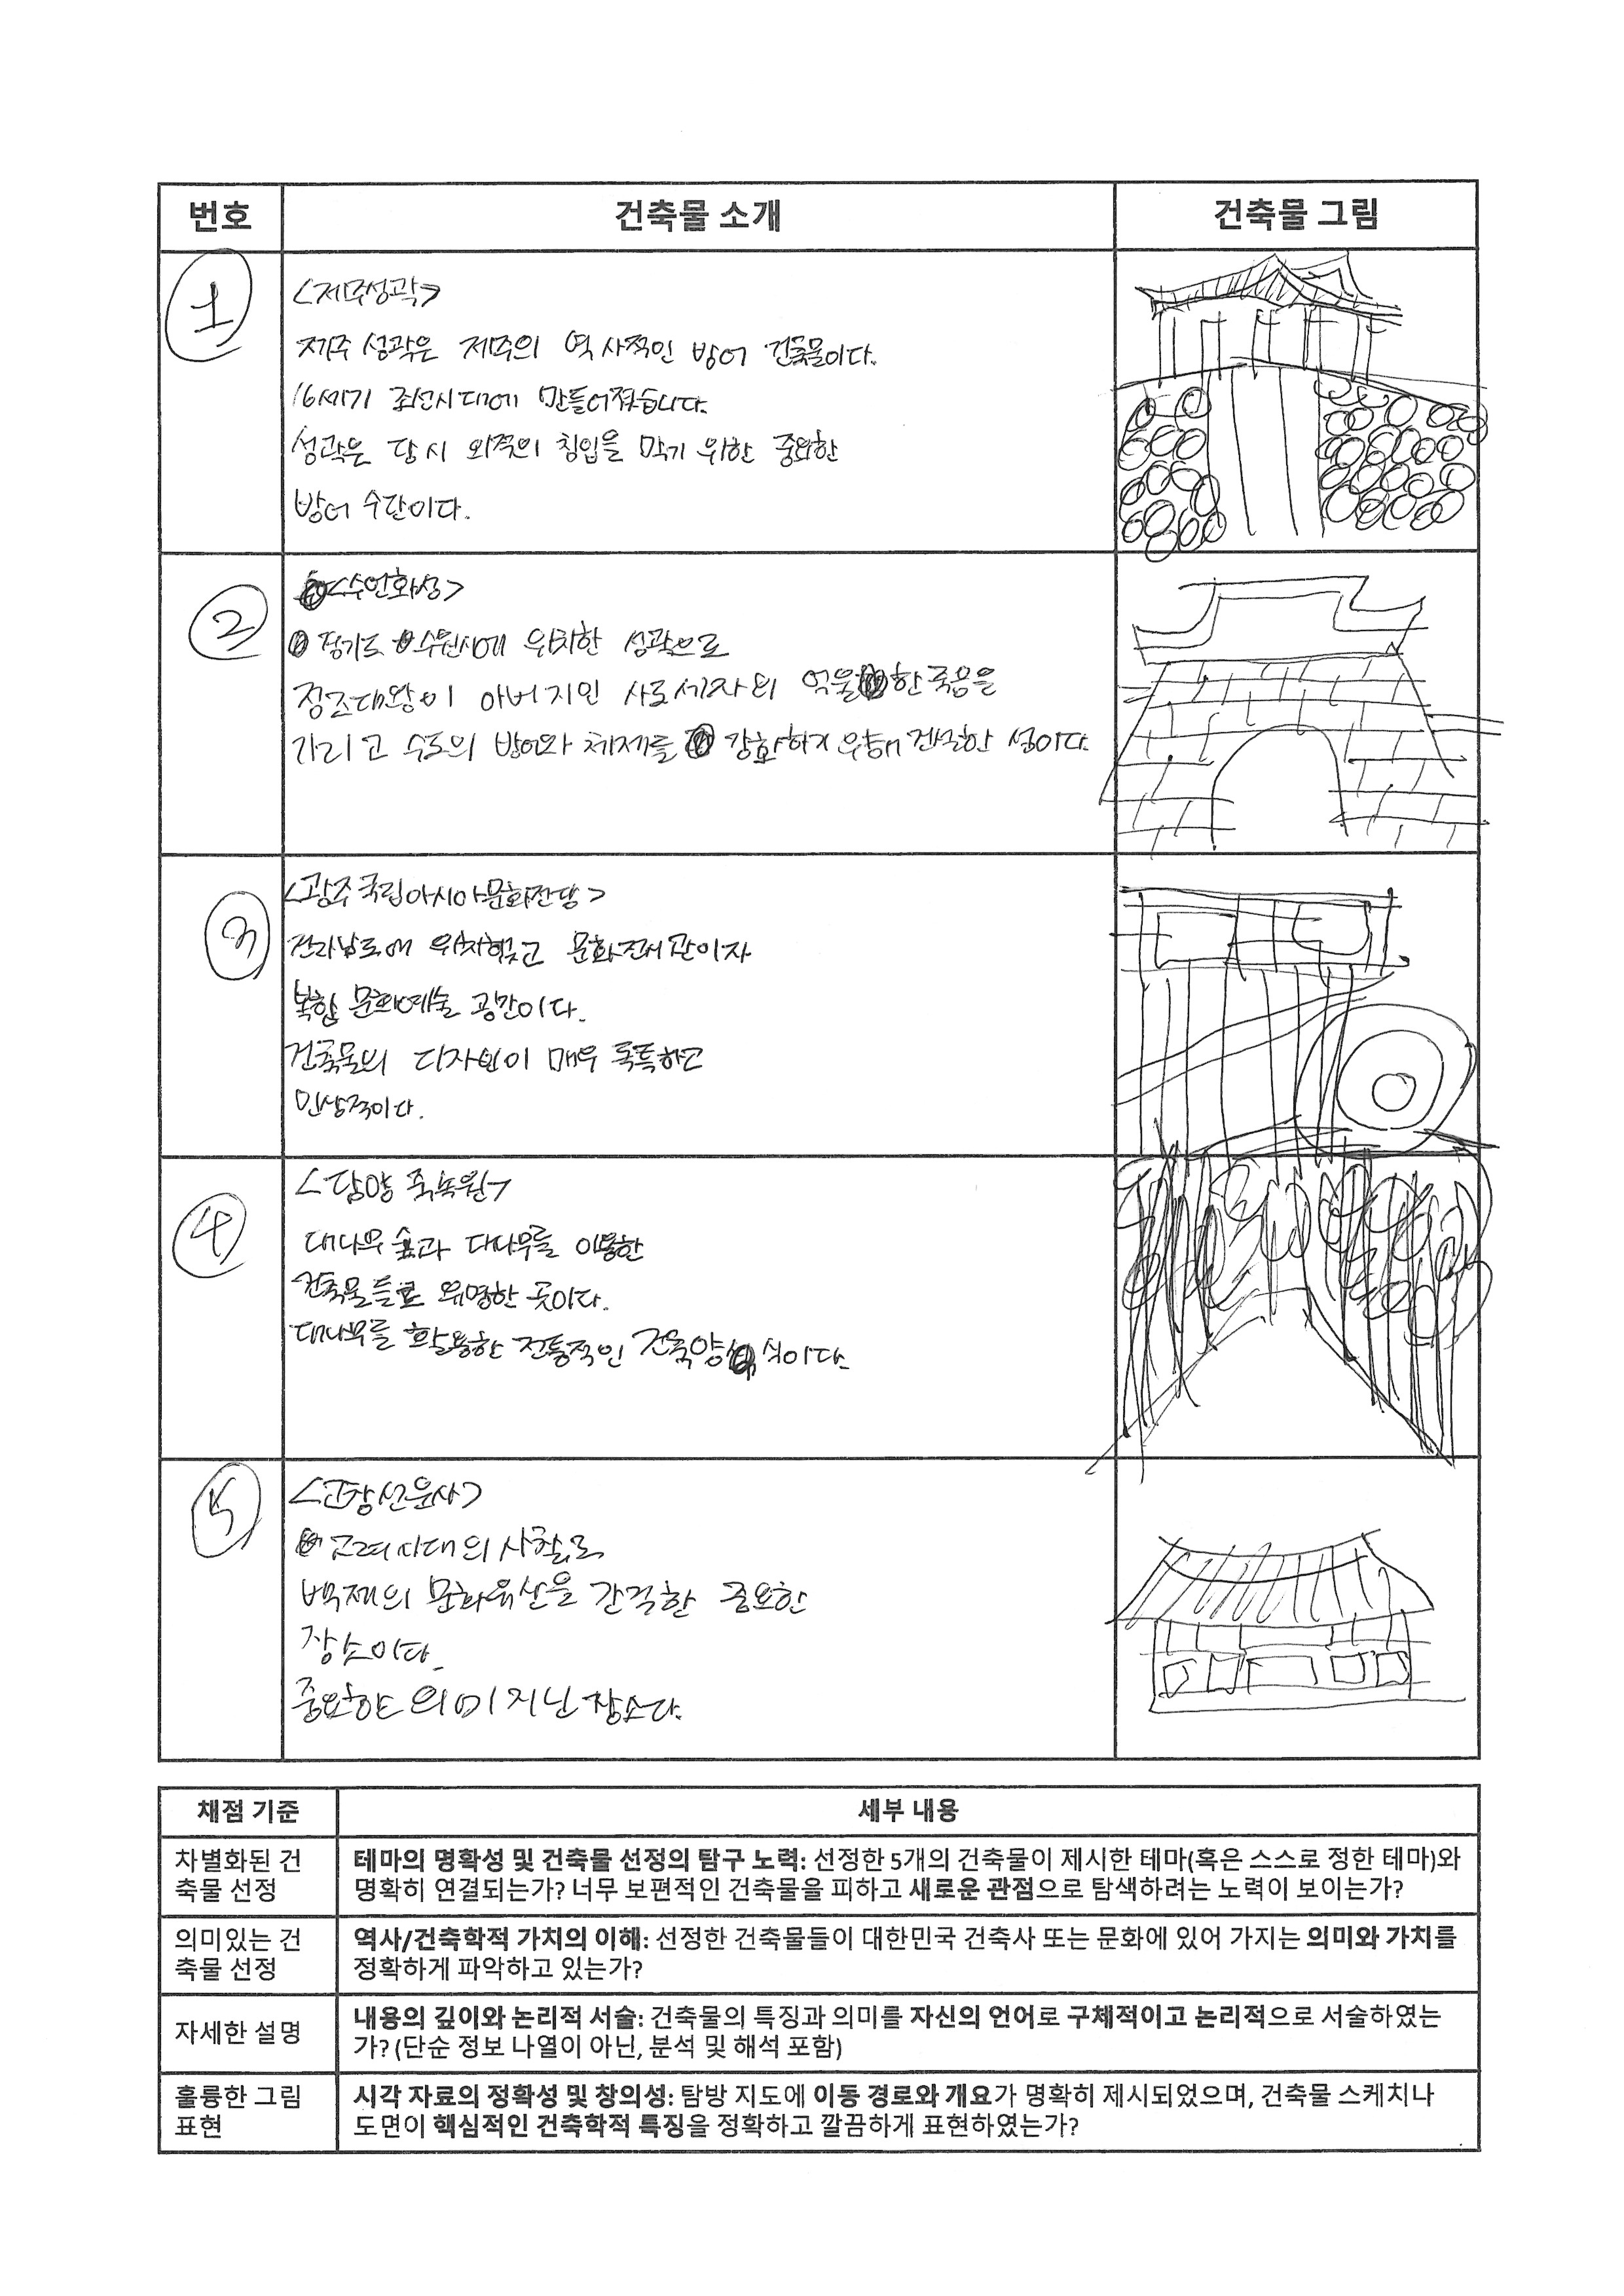 번호 건축물 소개 건축물 그림
1
<제주성곽>
제주 성곽은 제주의 역사적인 방어 건축물이다.
16세기 조선시대에 만들어졌습니다.
성곽은 당시 외적의 침입을 막기 위한 중요한
방어 수단이다.
2
<수원화성>
경기도 수원시에 위치한 성곽으로
정조대왕이 아버지인 사도세자의 억울한 죽음을
가리고 수도의 방어와 체제를 강화하기 위해 건설한 성이다.
3
<광주국립아시아문화전당>
전라남도에 위치했고 문화전시관이자
복합 문화예술 공간이다.
건축물의 디자인이 매우 독특하고
인상적이다.
4
<담양 죽녹원>
대나무 숲과 대나무를 이용한
건축물들로 유명한 곳이다.
대나무를 활용한 전통적인 건축양식이다.
5
<고창선운사>
고려시대의 사찰로
백제의 문화유산을 간직한 중요한
장소이다.
중요한 의미 지닌 장소다.
채점 기준 세부 내용
차별화된 건
축물 선정
테마의 명확성 및 건축물 선정의 탐구 노력: 선정한 5개의 건축물이 제시한 테마(혹은 스스로 정한 테마)와
명확히 연결되는가? 너무 보편적인 건축물을 피하고 새로운 관점으로 탐색하려는 노력이 보이는가?
의미있는 건
축물 선정
역사/건축학적 가치의 이해: 선정한 건축물들이 대한민국 건축사 또는 문화에 있어 가지는 의미와 가치를
정확하게 파악하고 있는가?
자세한 설명
내용의 깊이와 논리적 서술: 건축물의 특징과 의미를 자신의 언어로 구체적이고 논리적으로 서술하였는
가? (단순 정보 나열이 아닌, 분석 및 해석 포함)
훌륭한 그림
표현
시각 자료의 정확성 및 창의성: 탐방 지도에 이동 경로와 개요가 명확히 제시되었으며, 건축물 스케치나
도면이 핵심적인 건축학적 특징을 정확하고 깔끔하게 표현하였는가?